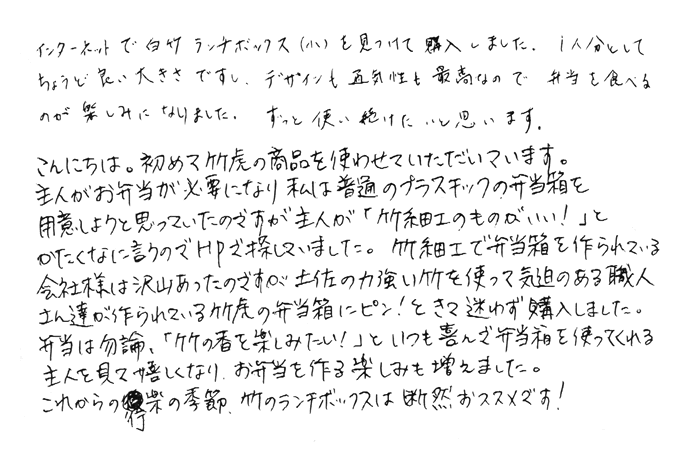 インターネットで白竹ランチボックス(小)を見つけて購入しました。1人分として
ちょうど良い大きさですし、デザインも通気性も最高なので弁当を食べる
のが楽しみになりました。ずっと使い続けたいと思います。
こんにちは。初めて竹虎の商品を使わせていただいています。
主人がお弁当が必要になり私は普通のプラスチックの弁当箱を
用意しようと思っていたのですが主人が「竹細工のものがいい!」と
かたくなに言うのでHPで探していました。竹細工で弁当箱を作られている
会社様は沢山あったのですが土佐の力強い竹を使って気迫のある職人
さん達が作られている竹虎の弁当箱にピン!ときて迷わず購入しました。
弁当は勿論、「竹の香を楽しみたい!」といつも喜んで弁当箱を使ってくれる
主人を見て嬉しくなり、お弁当を作る楽しみも増えました。
これからの行楽の季節、竹のランチボックスは断然おススメです!